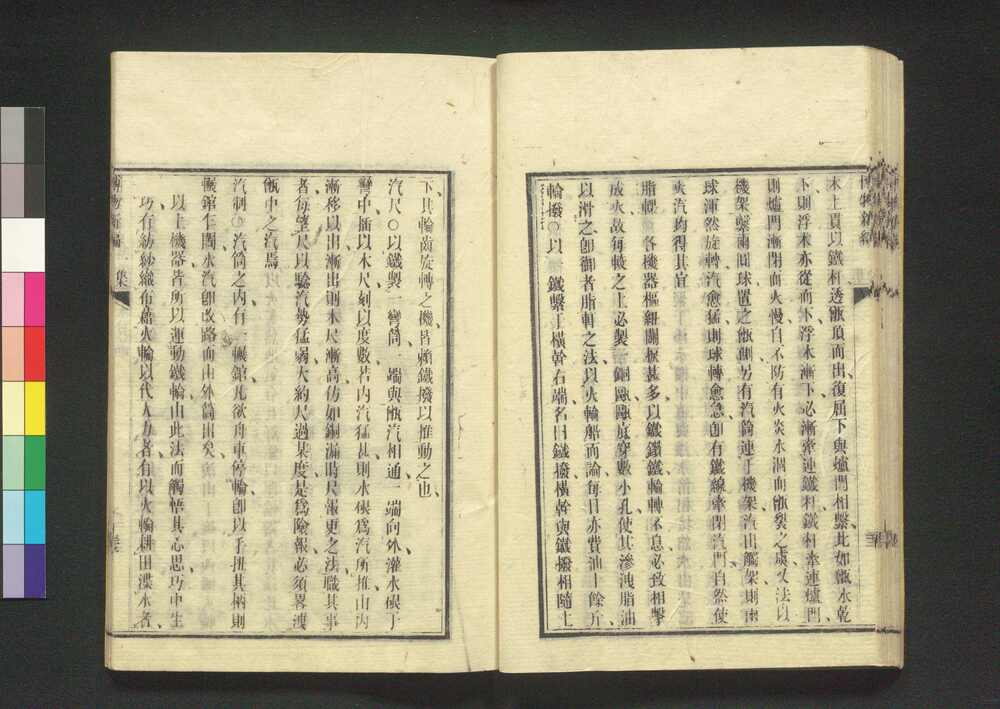 木上貫以鐵杆透甑頂而出、復屈下與爐門相繫、此如甑水乾
下則浮木亦從而下、浮木漸下必漸牽連鐵杆、鐵杆牽連爐門
則爐門漸閉而火慢、自不防有火炎水涸而甑裂之虞、又法以
機架繫兩圓球置之甑側、另有汽筩連于機架、汽出觸架則兩
球渾然旋轉、汽愈猛則球轉愈急、卽有鐵線牽閉汽門、自然使
火汽均得其宜
脂輠　各機器樞紐關捩甚多、以鐵鑽鐵輪轉不息、必致相擊
成火、故每軸之上必製一銅甌、甌底穿數小孔、使其滲洩脂油
以滑之、卽御者脂輨之法、以火輪船而論每日亦費油十餘斤
輪撥○以　鐵繫于橫幹右端、名曰鐵撥、橫幹與鐵撥相隨上
下、其輪齒旋轉之機皆賴鐵撥以推動之也
汽尺○以鐵製一彎筒、一端與甑汽相通、一端向外、灌水銀于
彎中、插以木尺、刻以度數、若內汽猛甚則水銀爲汽所推、由內
漸移以出、漸出則木尺漸高、仿如銅漏時尺報更之法、職其事
者每望尺以驗汽勢猛弱、大約尺過某度是爲險報、必須畧洩
甑中之汽焉
汽制○汽筒之內有一輾錧、凡欲舟車停輪、卽以手扭其柄、則
輾錧乍閉、水汽卽改路而由外筒出矣
以上機器皆所以運動鐵輪、由此法而觸悟其心思、巧中生
巧、有紡紗織布藉火輪以代人力者、有以火輪耕田渫水者、
博物新編
一集